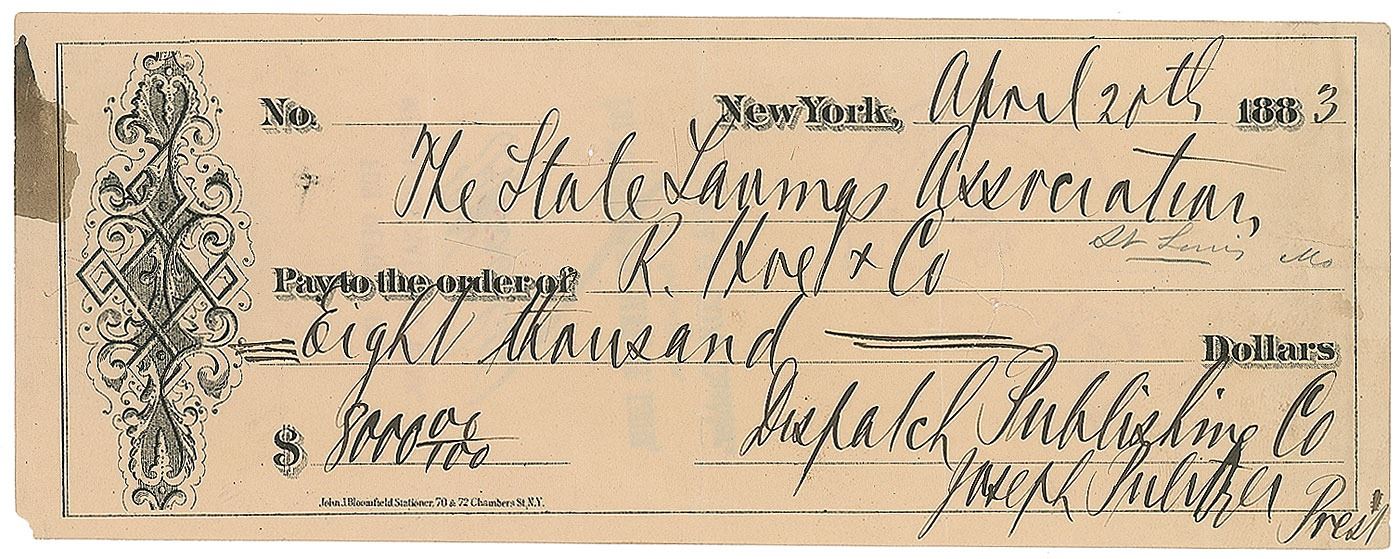 No. New York, April 20th 1883
The State Savings Association,
St Louis Mo
Pay to the order of R. Hoe & Co
Eight thousand Dollars
$ 8000 00/100 Dispatch Publishing Co
Joseph Pulitzer Prest
John J. Bloomfield Stationer, 70 & 72 Chambers St. N.Y.